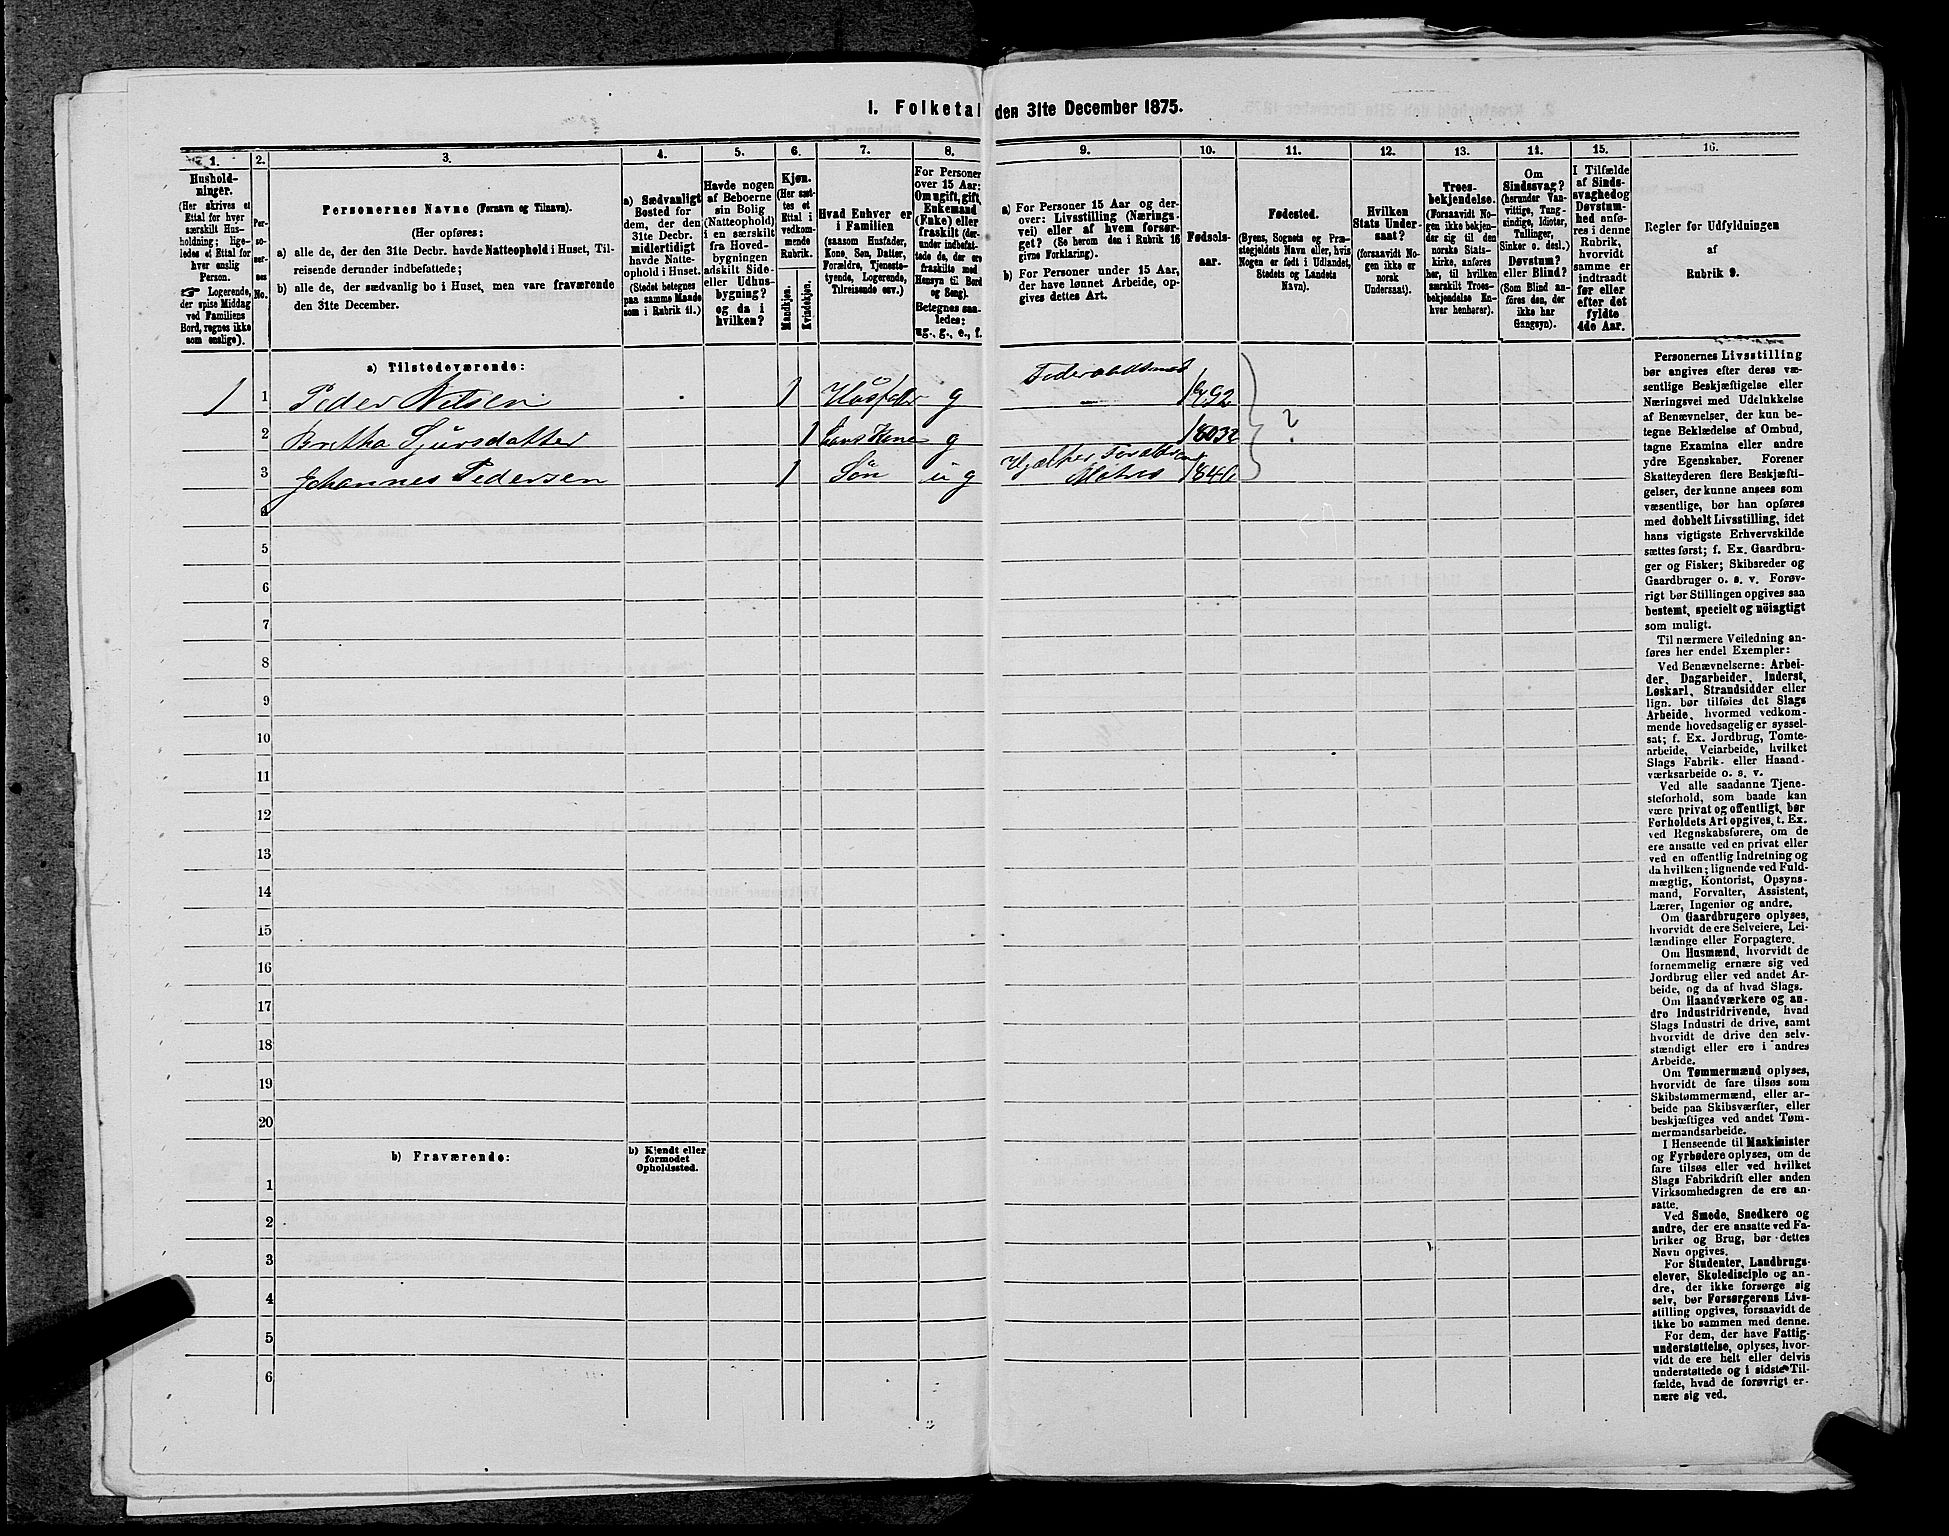 I. Folketal den 31te December 1875.
1.
Hushold-
ninger.
(Her skrives et
Ettal for hver
særskilt Hus-
holdning; lige-
ledes et Ettal for
hver enslig
Person.
☞ Logerende,
der spise Middag
ved Familiens
Bord, regnes ikke
som enslige).
2.
Per-
so-
ner-
nes
No.
3.
Personernes Navne (Fornavn og Tilnavn).
(Her opføres:
a) alle de, der den 31te Decbr. havde Natteophold i Huset, Til-
reisende derunder indbefattede;
b) alle de, der sædvanlig bo i Huset, men vare fraværende
den 31te December.
4.
a) Sædvanligt
Bosted for
dem, der den
31te Decbr.
midlertidigt
havde Natte-
ophold i Huset.
(Stedet betegnes
paa samme Maade
som i Rubrik 11.)
5.
Havde nogen
af Beboerne
sin Bolig
(Natteophold)
i en særskilt
fra Hoved-
bygningen
adskilt Side-
eller Udhus-
bygning?
og da i
hvilken?
6.
Kjøn.
(Her sæt-
tes et
Ettal i
vedkom-
mende
Rubrik.
Mandkjøn.
Kvindekjøn.
7.
Hvad Enhver er
i Familien
(saasom Husfader,
Kone, Søn, Datter,
Forældre, Tjeneste-
tyende, Logerende,
Tilreisende osv.)
8.
For Personer
over 15 Aar:
Om ugift, gift,
Enkemand
(Enke) eller
fraskilt (der-
under indbefat-
tede de, der ere
fraskilte med
Hensyn til Bord
og Seng).
Betegnes saa-
ledes:
ug., g., e., f.
9.
a) For Personer 15 Aar og der-
over: Livsstilling (Nærings-
vei) eller af hvem forsør-
get? (Se herom den i Rubrik 16
givne Forklaring).
b) For Personer under 15 Aar,
der have lønnet Arbeide, op-
gives dettes Art.
10.
Fødsels-
aar.
11.
Fødested.
(Byens, Sognets og Præ-
stegjeldets Navn eller, hvis
Nogen er født i Udlandet,
Stedets og Landets
Navn).
12.
Hvilken
Stats Under-
saat?
(forsaavidt No-
gen ikke er
norsk
Undersaat).
13.
Troes-
bekjendelse.
(Forsaavidt No-
gen ikke bekjen-
der sig til den
norske Stats-
kirke, anføres
her, til hvilken
særskilt Troes-
bekjendelse En-
hver henhører).
14.
Om
Sindssvag?
(herunder Van-
vittige, Tung-
sindige, Idioter,
Tullinger,
Sinker o. desl.)
Døvstum?
eller Blind?
(Som Blind an-
føres den, der
ikke har
Gangsyn).
15.
I Tilfælde
af Sinds-
svaghed og
Døvstum-
hed anfø-
res i denne
Rubrik,
hvorvidt
samme er
indtraadt
før eller
efter det
fyldte
4de Aar.
16.
Regler for Udfyldningen
af
Rubrik 9.
a) Tilstedeværende:
1 1 Peder Nilsen 1 Husfader g Føderaadsmand 1792
2 Brita Sjursdatter 1 hans Kone g 1803 ?
3 Johannes Pedersen 1 Søn ug Hjælper Forældrene 1846
4
5
6
7
8
9
10
11
12
13
14
15
16
17
18
19
20
b) Fraværende:
b) Kjendt eller
formodet
Opholdssted.
1
2
3
4
5
6
Personernes Livsstilling
bør angives efter deres væ-
sentlige Beskjæftigelse eller
Næringsvei med Udelukkelse
af Benævnelser, der kun be-
tegne Beklædelse af Ombud,
tagne Examina eller andre
ydre Egenskaber. Forener
Skatteyderen flere Beskjæfti-
gelser, der kunne ansees som
væsentlige, bør han opføres
med dobbelt Livsstilling, idet
hans vigtigste Erhvervskilde
sættes først; f. Ex. Gaardbru-
ger og Fisker; Skibsreder og
Gaardbruger o. s. v. Forøv-
rigt bør Stillingen opgives saa
bestemt, specielt og nöiagtigt
som muligt.
Til nærmere Veiledning an-
føres her endel Exempler:
Ved Benævnelserne: Arbei-
der, Dagarbeider, Inderst,
Løskarl, Strandsidder eller
lign. bør tilføies det Slags
Arbeide, hvormed vedkom-
mende hovedsagelig er syssel-
sat; f. Ex. Jordbrug, Tomte-
arbeide, Veiarbeide, hvilket
Slags Fabrik- eller Haand-
værksarbeide o. s. v.
Ved alle saadanne Tjene-
steforhold, som baade kan
være privat og offentligt, bør
Forholdets Art opgives, t. Ex.
ved Regnskabsførere, om de
ere ansatte ved en privat eller
ved en offentlig Indretning og
da hvilken; lignende ved Fuld-
mægtig, Kontorist, Opsyns-
mand, Forvalter, Assistent,
Lærer, Ingeniør og andre.
Om Gaardbrugere oplyses,
hvorvidt de ere Selveiere, Lei-
lændinge eller Forpagtere.
Om Husmænd, hvorvidt de
fornemmelig ernære sig ved
Jordbrug eller ved andet Ar-
beide, og da af hvad Slags.
Om Haandværkere og an-
dre Industridrivende, hvad
Slags Industri de drive, samt
hvorvidt de drive den selv-
stændigt eller ere i andres
Arbeide.
Om Tømmermænd oplyses,
hvorvidt de fare tilsøs som
Skibstømmermænd, eller ar-
beide paa Skibsværfter, eller
beskjæftiges ved andet Tøm-
mermandsarbeide.
I Henseende til Maskinister
og Fyrbødere oplyses, om de
fare tilsøs eller ved hvilket
Slags Fabrikdrift eller anden
Virksomhedsgren de ere an-
satte.
Ved Smede, Snedkere og
andre, der ere ansatte ved Fa-
briker og Brug, bør dettes
Navn opgives.
For Studenter, Landbrugs-
elever, Skoledisciple og an-
dre, der ikke forsørge sig
selv, bør Forsørgerens Livs-
stilling opgives, forsaavidt de
ikke bo sammen med denne.
For dem, der have Fattig-
understøttelse, oplyses, hvor-
vidt de ere helt eller delvis
understøttede og i sidste Til-
fælde, hvad de forøvrigt er-
nære sig ved.